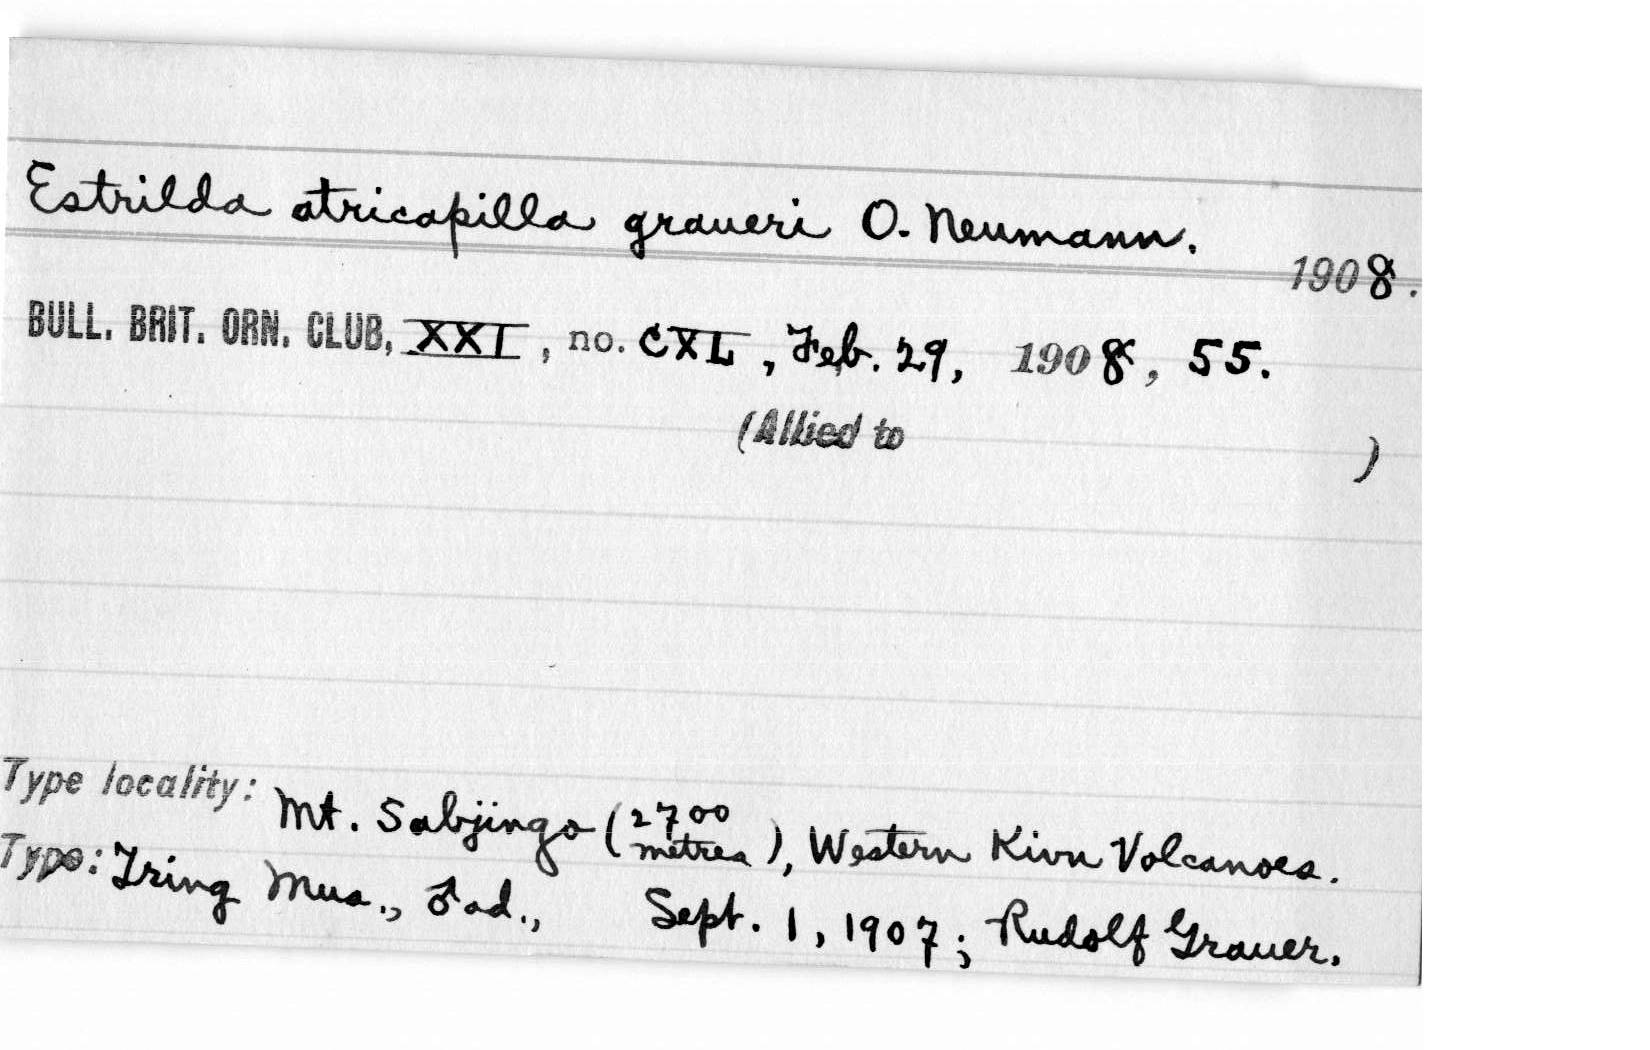 Estrilda atricapilla graueri O. Neumann.
1908.
BULL. BRIT. ORN. CLUB, XXI, no. CXL, Feb. 29, 1908, 55.
(Allied to )
Type locality: Mt. Sabjingo (2700 metres), Western Kivu Volcanoes.
Type: Tring Mus., ♂ ad., Sept. 1, 1907; Rudolf Grauer.